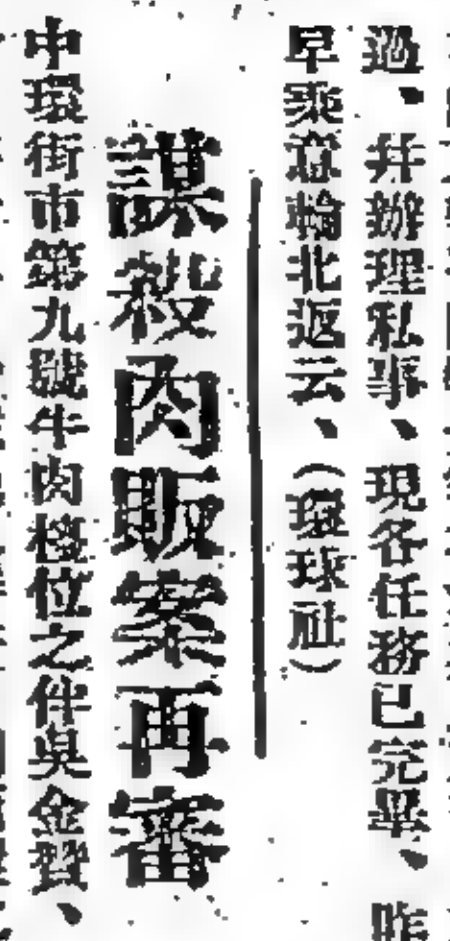 過、幷辦理私事、現各任務已完畢、昨
早乘意輪北返云、（環球社）
謀殺肉販案再審
中環街市第九號牛肉檯位之伴吳金贊、